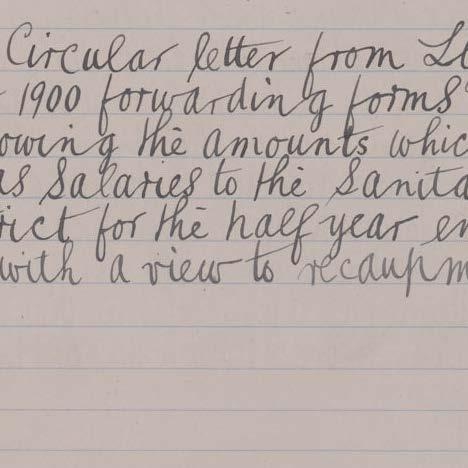 Circular letter from Lo
1900 forwarding forms
owing the amounts whic
as Salaries to the Sanita
rict for the half year en
with a view to recaupm